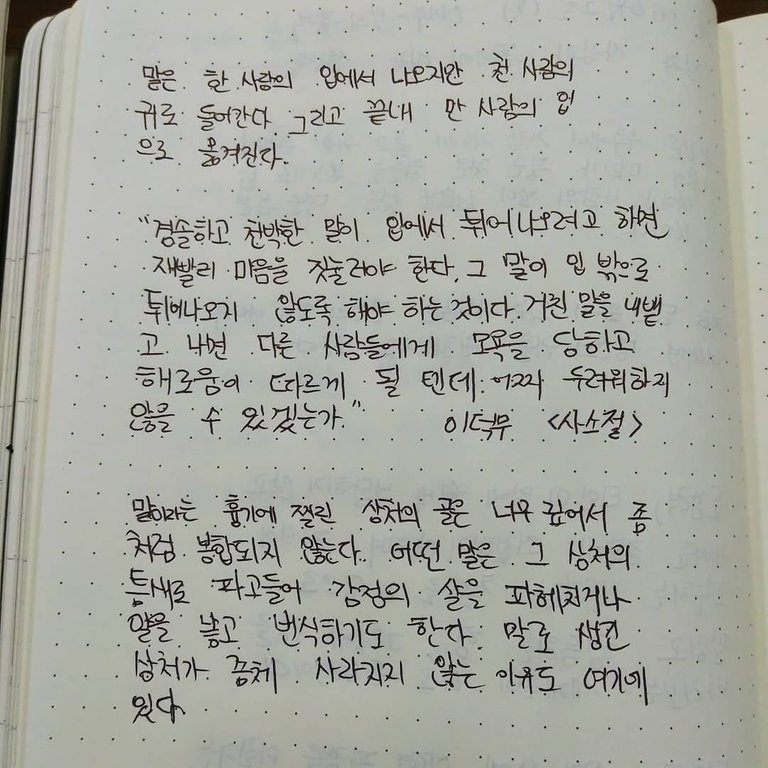 말은 한 사람의 입에서 나오지만 천 사람의
귀로 들어간다. 그리고 끝내 만 사람의 입
으로 옮겨진다.
"경솔하고 천박한 말이 입에서 튀어나오려고 하면
재빨리 마음을 짓눌러야 한다. 그 말이 입 밖으로
튀어나오지 않도록 해야 하는 것이다. 거친 말을 내뱉
고 나면 다른 사람들에게 모욕을 당하고
해로움이 따르게 될 텐데 어찌 두려워하지
않을 수 있겠는가." 이덕무 <사소절>
말이라는 흉기에 찔린 상처의 골은 너무 깊어서 좀
처럼 봉합되지 않는다. 어떤 말은 그 상처의
틈새로 파고들어 감정의 살을 파헤치거나
알을 낳고 번식하기도 한다. 말로 생긴
상처가 좀체 사라지지 않는 이유도 여기에
있다.